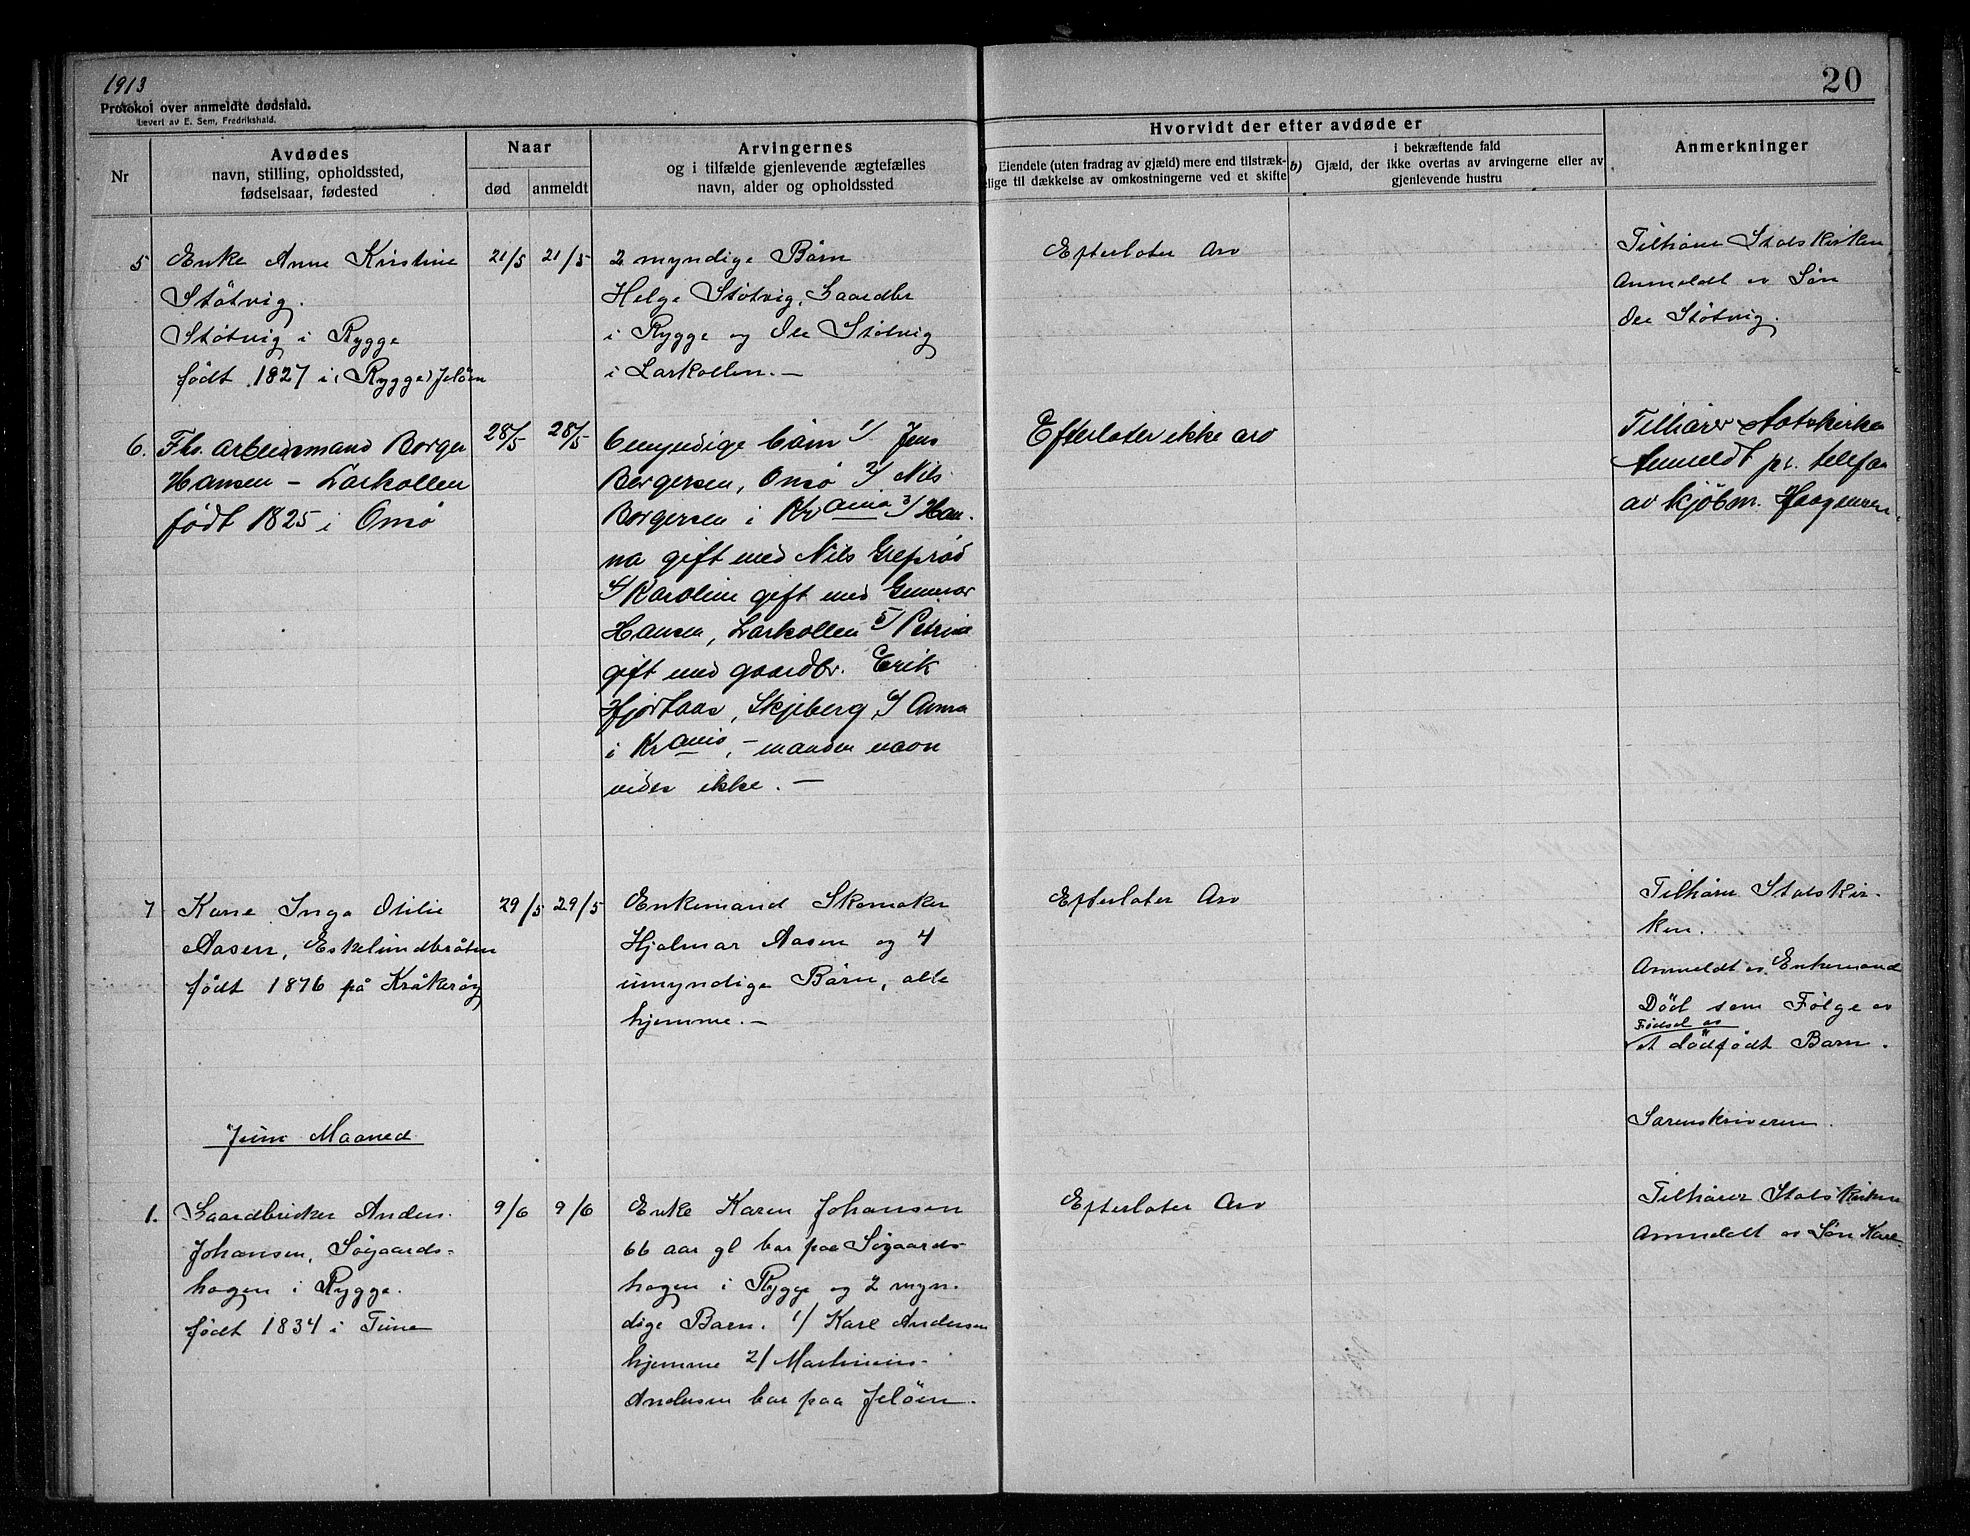 1913
20
Protokol over anmeldte dødsfald.
Levert av E. Sem, Fredrikshald.
Nr
Avdødes
navn, stilling, opholdssted,
fødselsaar, fødested
Naar
død
anmeldt
Arvingernes
og i tilfælde gjenlevende ægtefælles
navn, alder og opholdssted
Hvorvidt der efter avdøde er
Eiendele (uten fradrag av gjæld) mere end tilstræk-
elige til dækkelse av omkostningerne ved et skifte
i bekræftende fald
b) Gjæld, der ikke overtas av arvingerne eller av
gjenlevende hustru
Anmerkninger
5
Enke Anne Kristine
Støtvig.
Støtvig i Rygge
født 1827 i (Rygge) Jeløen
21/5
21/5
2 myndige Børn
Helge Støtvig, Gaardbr
i Rygge og Ole Støtvig
i Larkollen. —
Efterlater Arv
Tilhører Statskirken
Anmeldt av Søn
Ole Støtvig.
6.
Fhv. arbeidsmand Borger
Hansen – Larkollen
født 1825 i Onsø
28/5
28/5
6 myndige børn 1/ Jens
Borgersen, Onsø 2/ Nils
Borgersen i Kr.ania 3/ Han-
na gift med Nils Greprød
4/ Karoline gift med Gunnar
Hansen, Larkollen 5/ Petrine
gift med gaardbr. Erik
Hjortaas, Skjeberg, 6/ Anna
i Kr.ania, – mandens navn
vides ikke. —
Efterlater ikke arv
Tilhører Statskirken
Anmeldt pr. telefon
av kjøbm. Haagensen.
7
Kone Inga Otilie
Aasen, Eskelundbråten
født 1876 på Kråkerøy
29/5
29/5
Enkemand Skomaker
Hjalmar Aasen og 4
umyndige Børn, alle
hjemme. —
Efterlater Arv
Tilhører Statskir-
ken.
Anmeldt av Enkemand
Død som Følge av
Fødsel av
et dødfødt Barn.
Juni Maaned
Sorenskriveren.
1.
Gaardbruker Anders
Johansen, Søgaards-
hagen i Rygge.
født 1834 i Tune
9/6
9/6
Enke Karen Johansen
66 aar gl bor paa Søgaards-
hagen i Rygge og 2 myn-
dige Barn. 1/ Karl Andersen
hjemme 2/ Martinius
Andersen bor paa Jeløen.
Efterlater Arv
Tilhører Statskirken
Anmeldt av Søn Karl